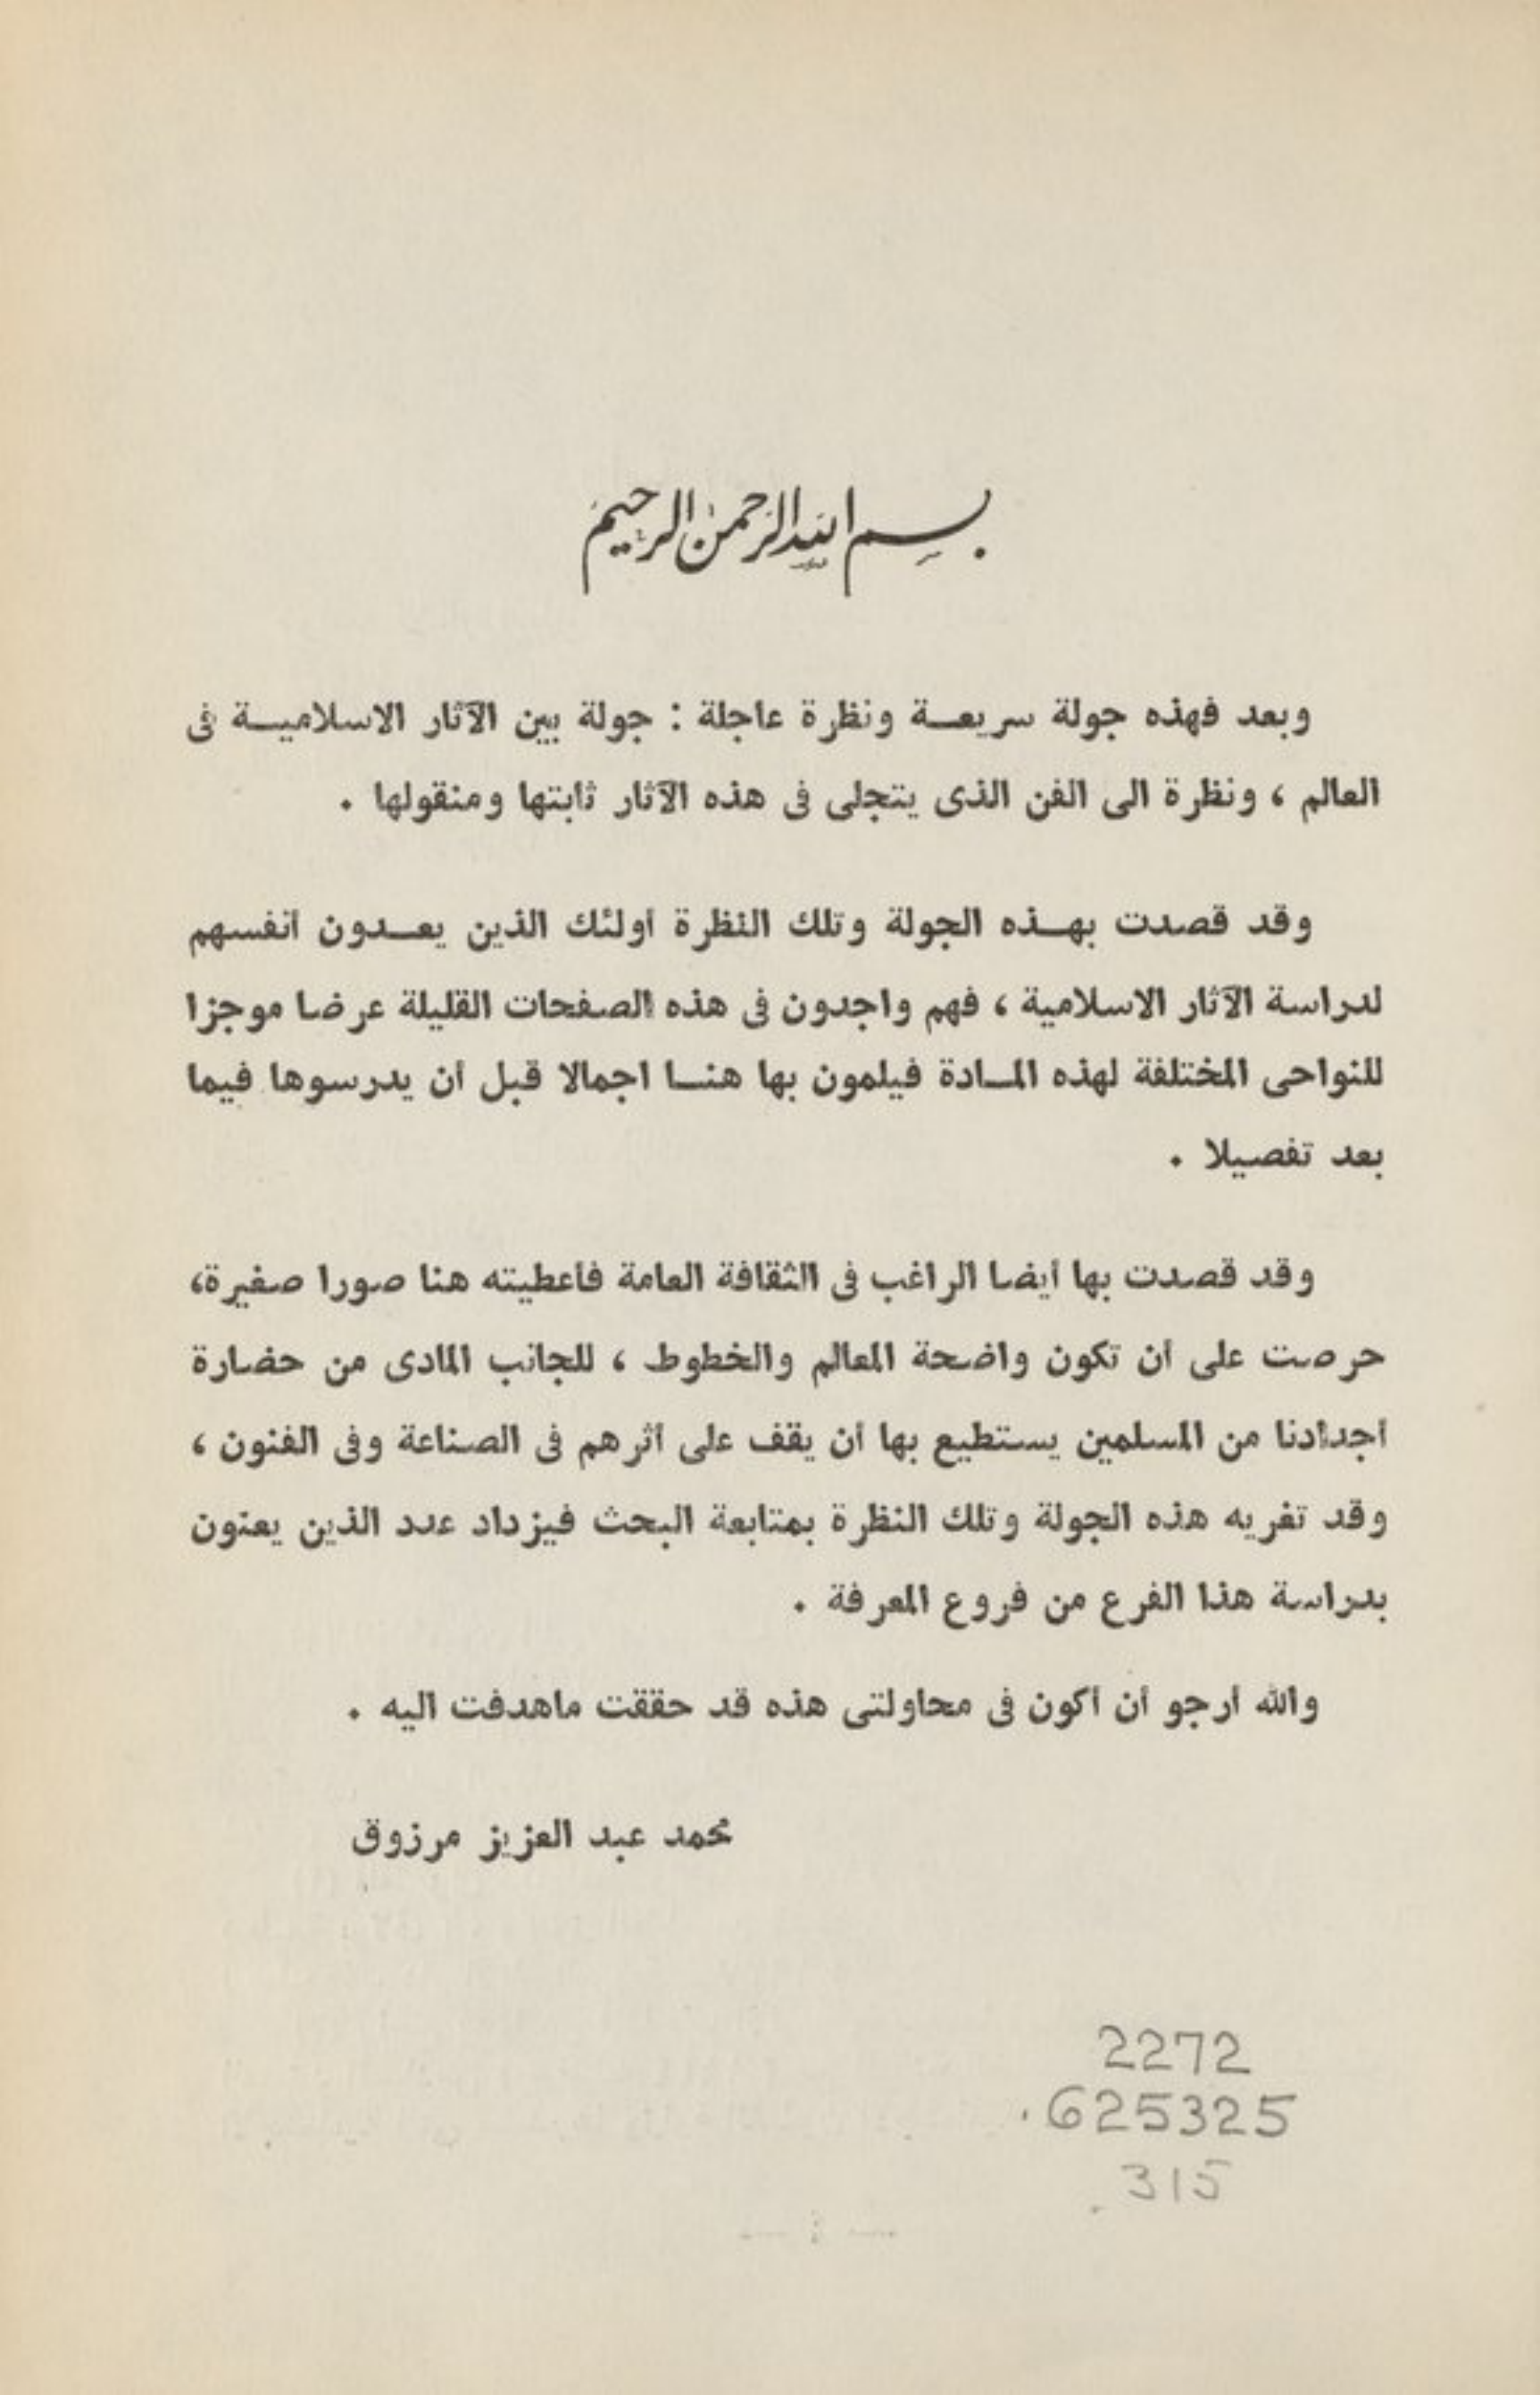 بسم الله الرحمن الرحيم
وبعد فهذه جولة سريعــة ونظرة عاجلة : جولة بين الآثار الاسلاميــة فى
العالم ، ونظرة الى الفن الذى يتجلى فى هذه الآثار ثابتها ومنقولها .
وقد قصدت بهــذه الجولة وتلك النظرة أولئك الذين يعــدون أنفسهم
لدراسة الآثار الاسلامية ، فهم واجدون فى هذه الصفحات القليلة عرضا موجزا
للنواحى المختلفة لهذه المــادة فيلمون بها هنــا اجمالا قبل أن يدرسوها فيما
بعد تفصيلا .
وقد قصدت بها أيضا الراغب فى الثقافة العامة فأعطيته هنا صورا صغيرة،
حرصت على أن تكون واضحة المعالم والخطوط ، للجانب المادى من حضارة
أجدادنا من المسلمين يستطيع بها أن يقف على أثرهم فى الصناعة وفى الفنون ،
وقد تغريه هذه الجولة وتلك النظرة بمتابعة البحث فيزداد عدد الذين يعنون
بدراسة هذا الفرع من فروع المعرفة .
والله أرجو أن أكون فى محاولتى هذه قد حققت ماهدفت اليه .
محمد عبد العزيز مرزوق
2272
.625325
.315